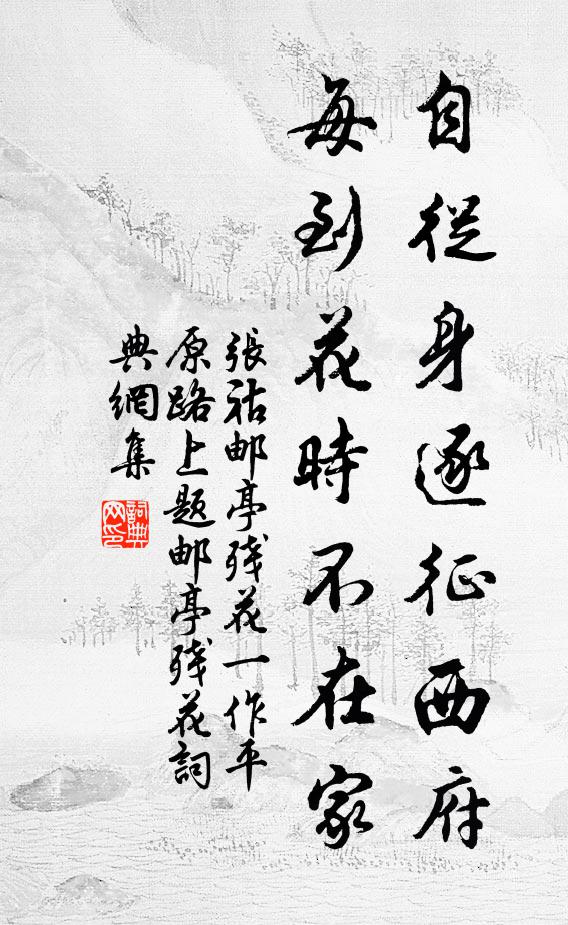 自從身逐征西府
每到花時不在家
張祜邮亭殘花一作平
原路上题邮亭殘花詞
典網集
詞典
网印